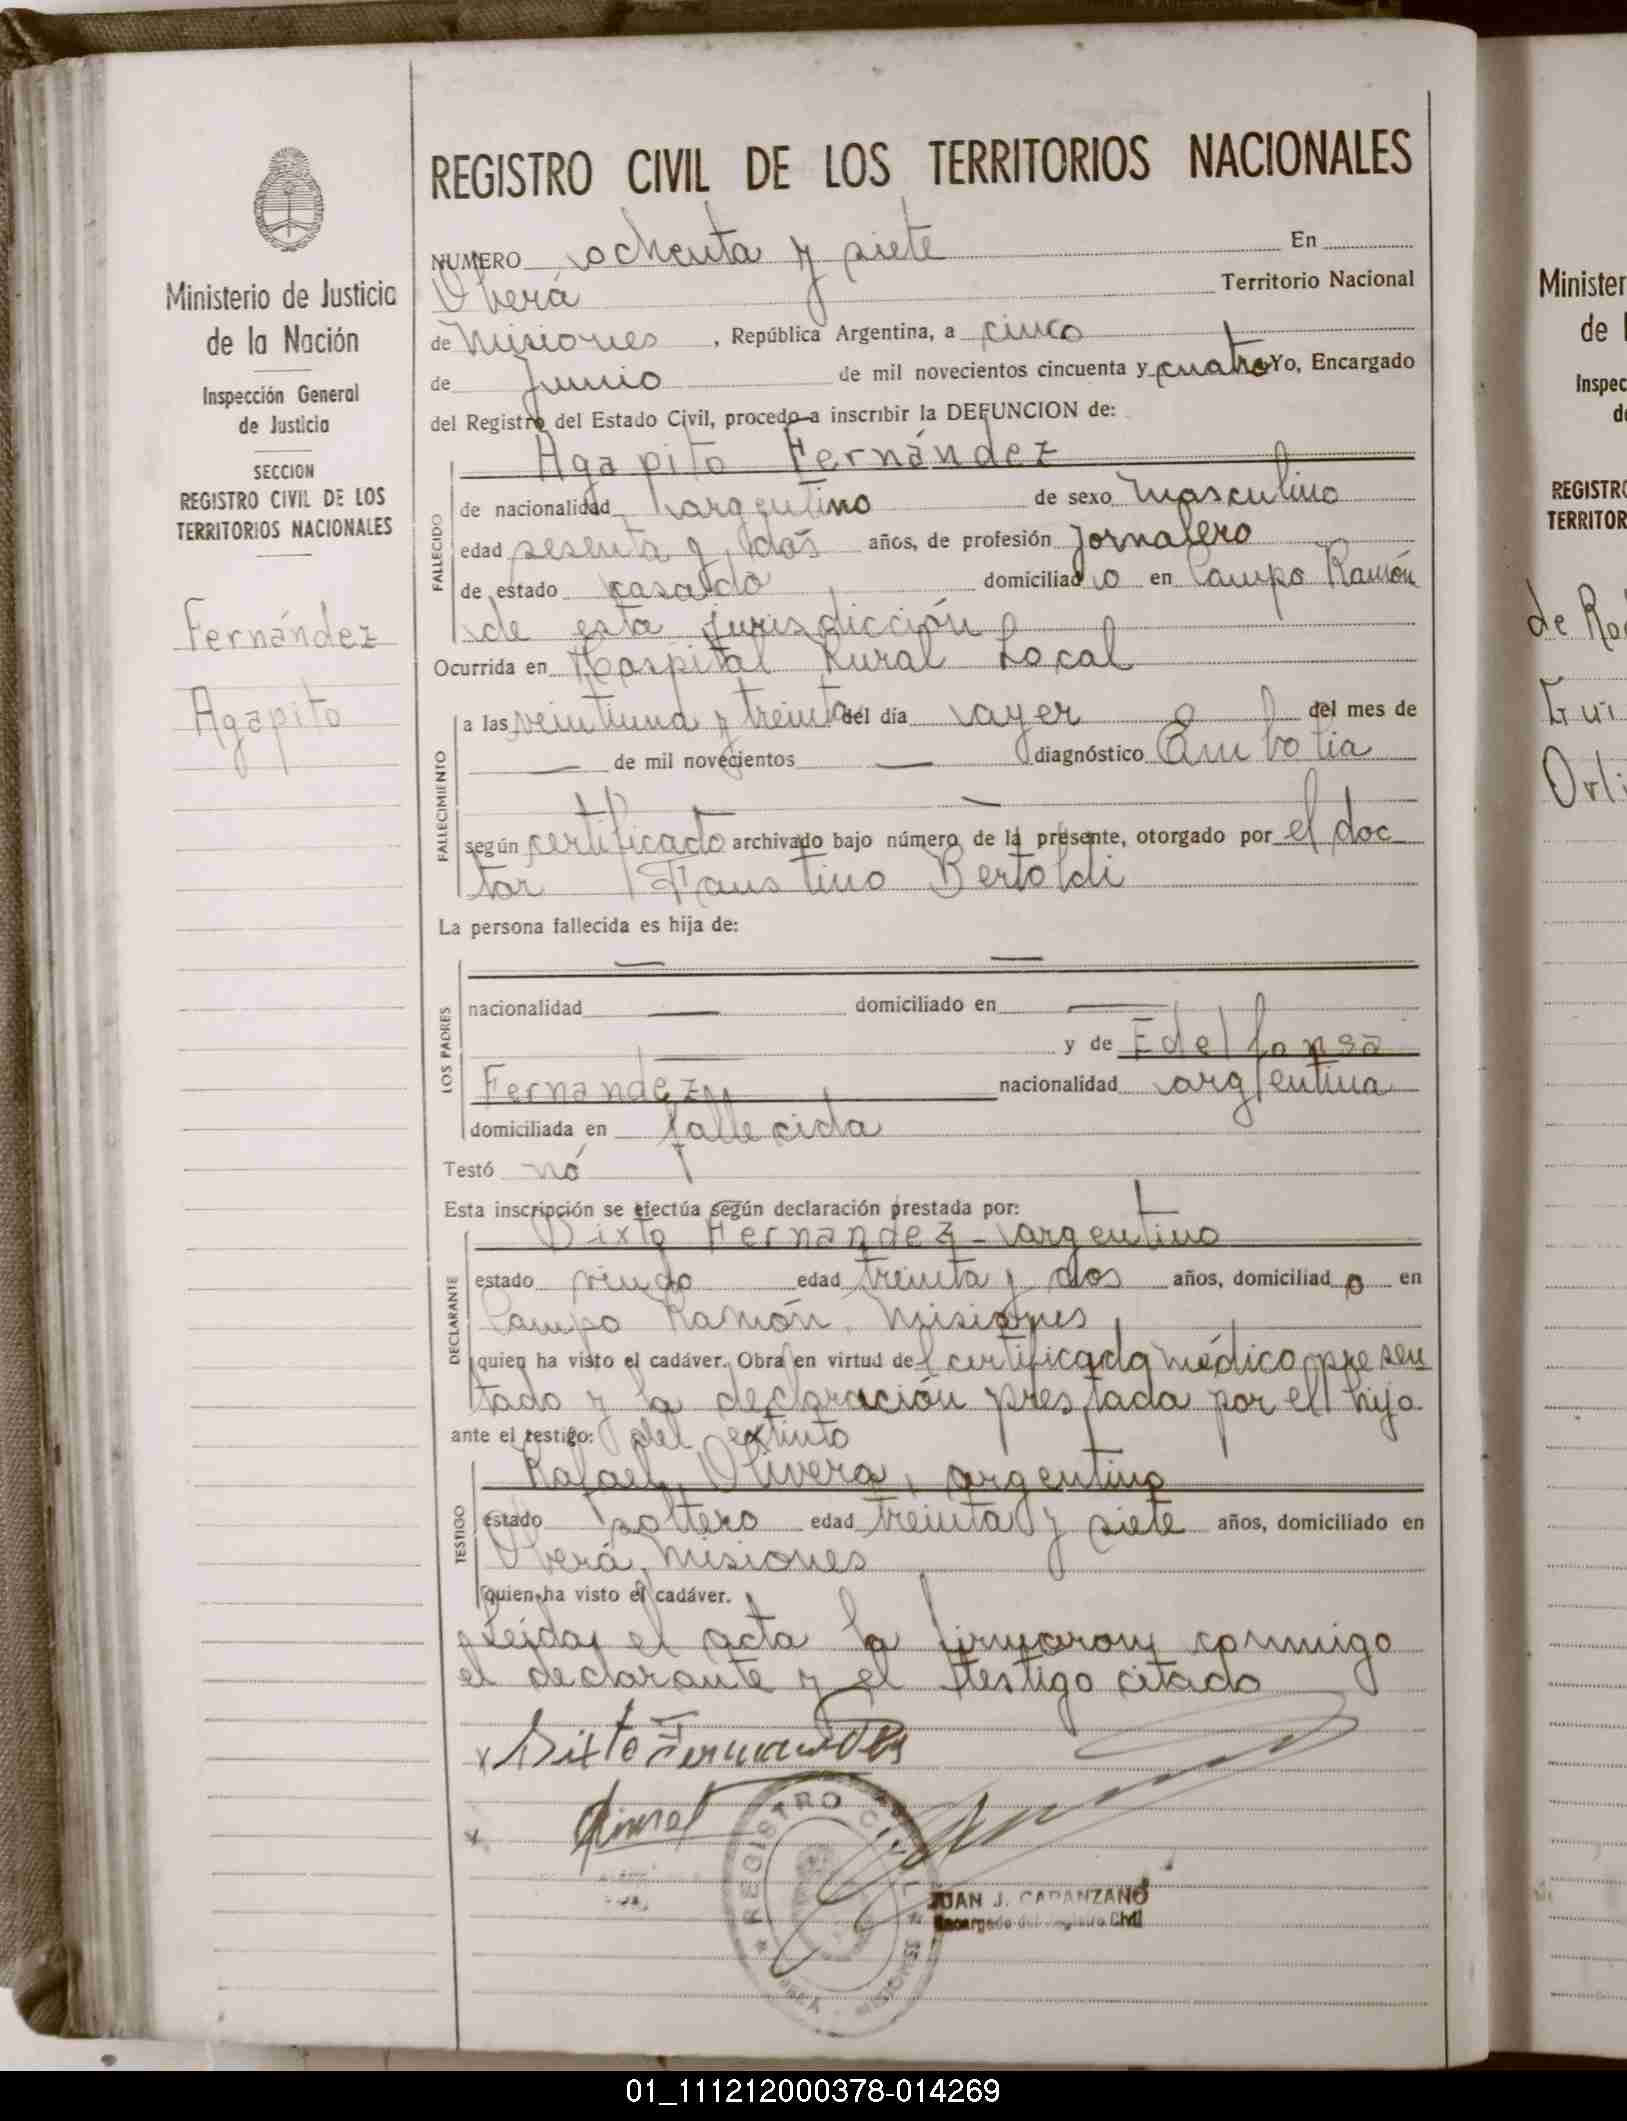 REGISTRO CIVIL DE LOS TERRITORIOS NACIONALES
Ministerio de Justicia
de la Nación
Inspección General
de Justicia
SECCION
REGISTRO CIVIL DE LOS
TERRITORIOS NACIONALES
Fernández
Agapito
NUMERO ochenta y siete En
Oberá Territorio Nacional
de Misiones, República Argentina, a cinco
de Junio de mil novecientos cincuenta y cuatro Yo, Encargado
del Registro del Estado Civil, procedo a inscribir la DEFUNCION de:
Agapito Fernández
FALLECIDO
de nacionalidad argentino de sexo masculino
edad sesenta y dos años, de profesión Jornalero
de estado casado domiciliado en Campo Ramón
de esta jurisdicción
Ocurrida en Hospital Rural Local
FALLECIMIENTO
a las veintiuna y treinta del día ayer del mes de
— de mil novecientos — diagnóstico Embolia
—
según certificado archivado bajo número de la presente, otorgado por el doc
tor Faustino Bertoldi
La persona fallecida es hija de:
— —
LOS PADRES
nacionalidad — domiciliado en —
— y de Edelfonsa
Fernandez nacionalidad argentina
domiciliada en fallecida
Testó nó
Esta inscripción se efectúa según declaración prestada por:
Sixto Fernandez - argentino
DECLARANTE
estado viudo edad treinta y dos años, domiciliado en
Campo Ramón, Misiones
quien ha visto el cadáver. Obra en virtud del certificado médico presen
tado y la declaración prestada por el hijo
ante el testigo: del extinto
Rafael Olivera, argentino
TESTIGO
estado soltero edad treinta y siete años, domiciliado en
Oberá, Misiones
quien ha visto el cadáver.
Leída el acta la firmaron conmigo
el declarante y el testigo citado
x Sixto Fernandez
x
REGISTRO CIVIL
JUAN J. CAPANZANO
Encargado del Registro Civil
Minister
de l
Inspec
de
REGISTRO
TERRITOR
01_111212000378-014269